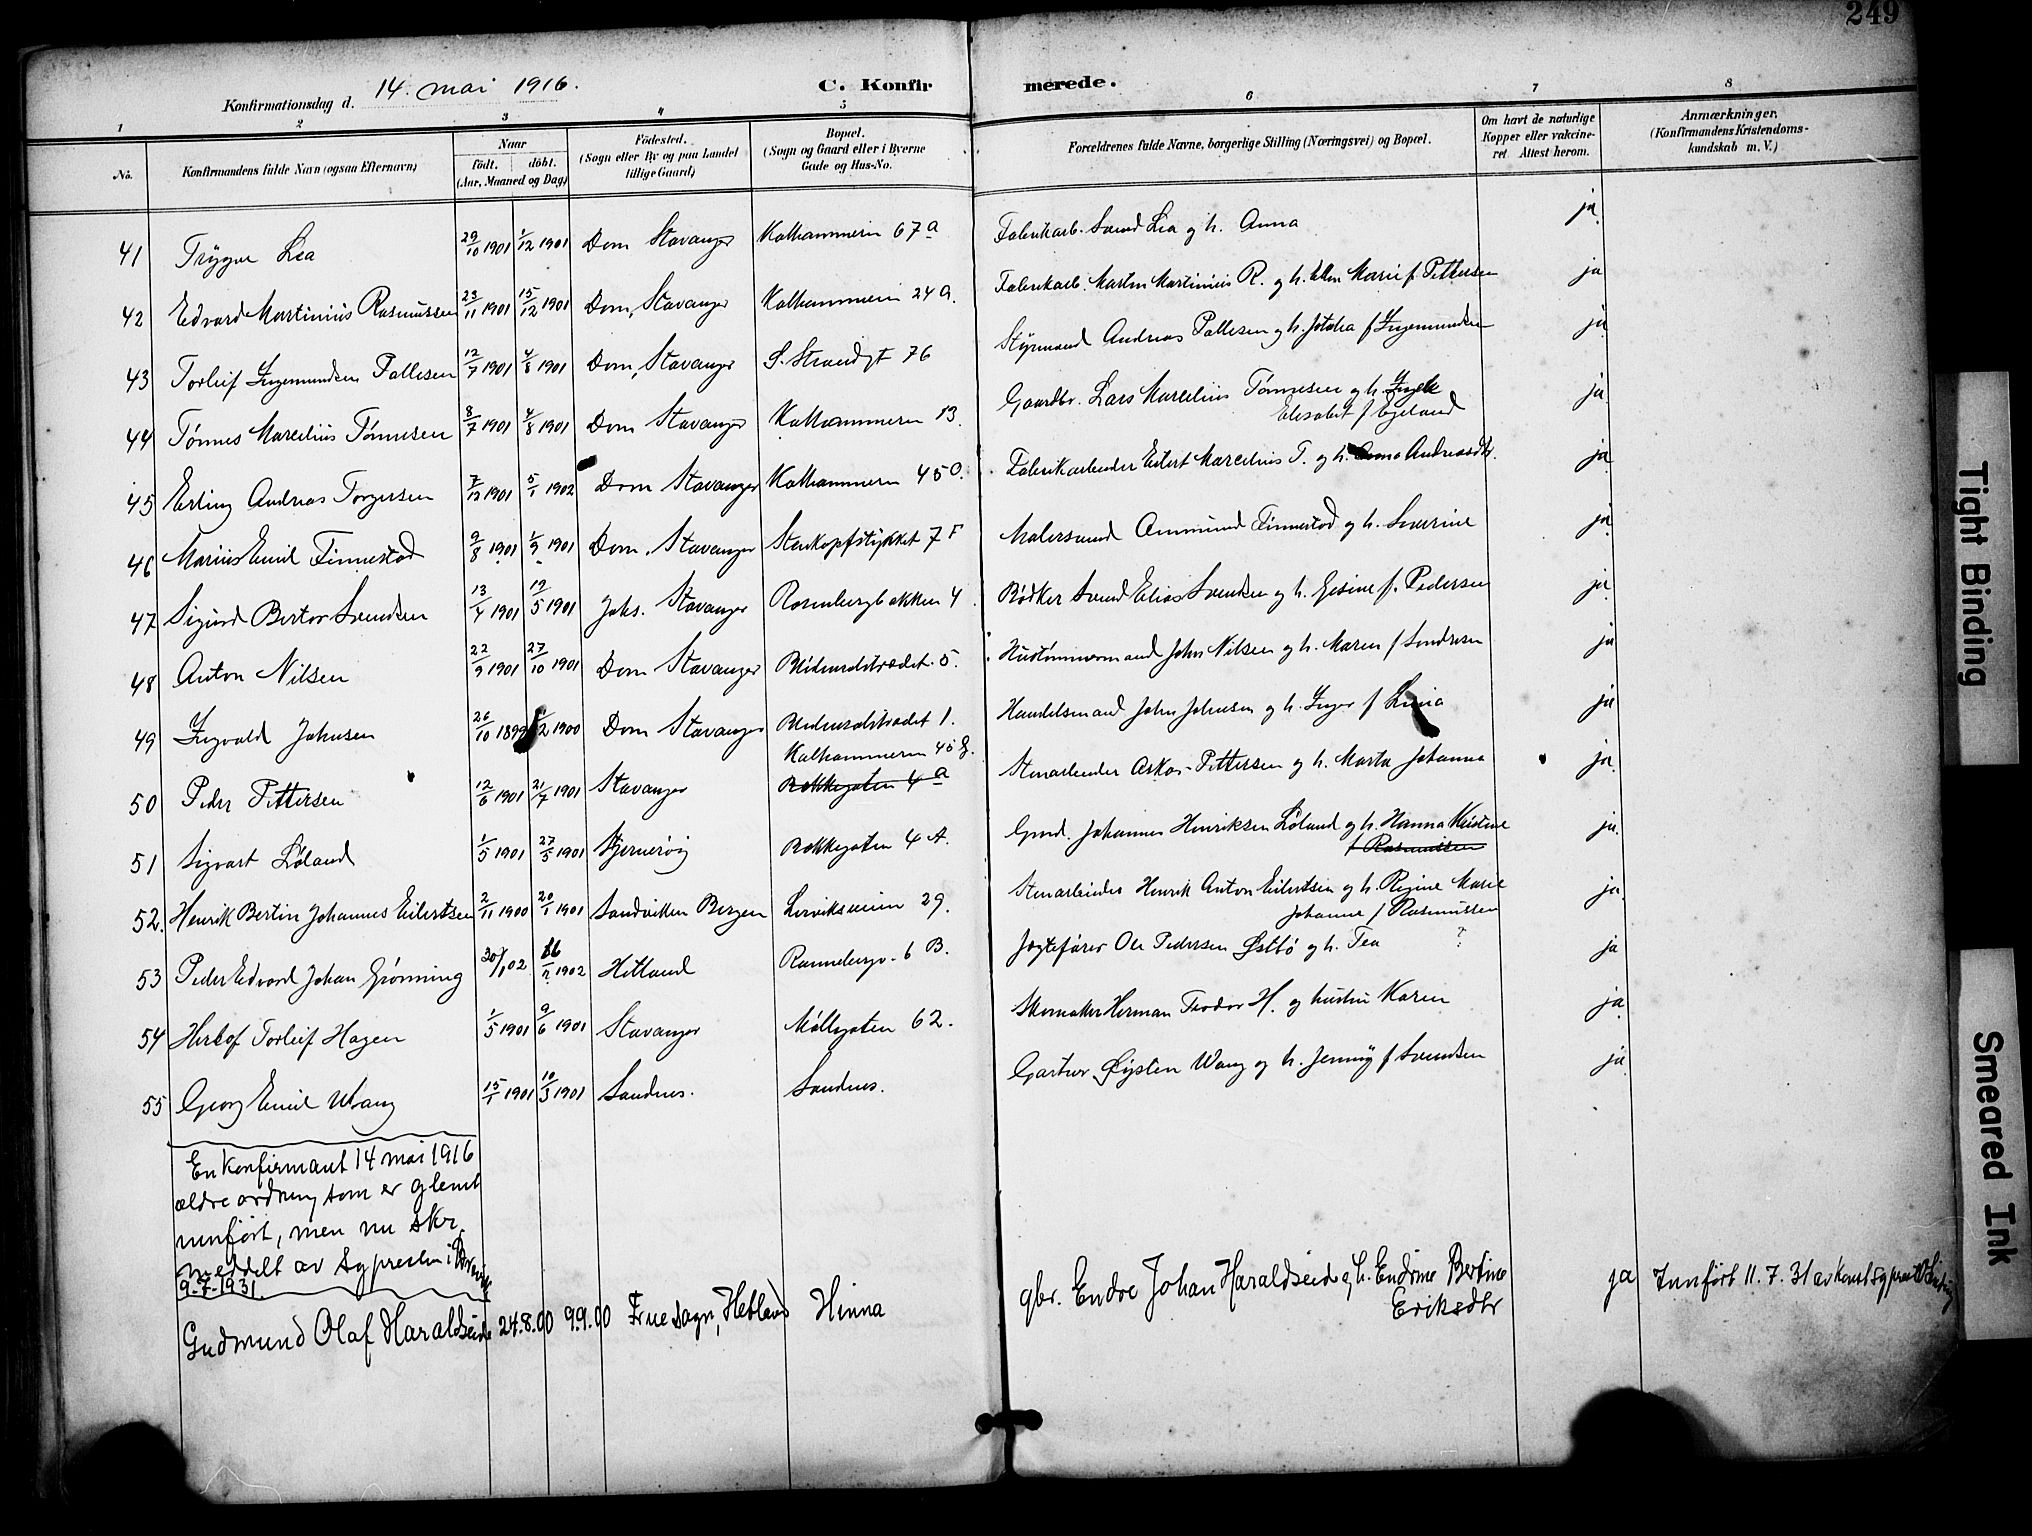 249
Konfirmationsdag d. 14. mai 1916. C. Konfirmerede.
1 2 3 4 5 6 7 8
No. Konfirmandens fulde Navn (ogsaa Efternavn) Naar født. døbt. (Aar, Maaned og Dag) Fødested. (Sogn eller By og paa Landet tillige Gaard) Bopæl. (Sogn og Gaard eller i Byerne Gade og Hus-No. Forældrenes fulde Navne, borgerlige Stilling (Næringsvei) og Bopæl. Om havt de naturlige Kopper eller vakcineret. Attest herom. Anmærkninger. (Konfirmandens Kristendomskundskab m. V.)
41 Trygve Lea 29/10 1901 1/12 1901 Dom Stavanger Kalhammeren 67a Fabrikarb. Svend Lea og h. Anna ja.
42 Edvard Martinius Rasmussen 23/11 1901 15/12 1901 Dom, Stavanger Kalhammeren 24a. Fabrikarb. Martin Martinius R. og h. Ellen Marie f. Pettersen ja
43 Torleif Ingemundsen Pallesen 12/7 1901 4/8 1901 Dom, Stavanger S. Strandgt 76 Styrmand Andreas Pallesen og h. f Ingemundsen ja
44 Tønnes Marcelius Tønnesen 8/7 1901 4/8 1901 Dom Stavanger Kalhammeren 13. Gaardbr. Lars Marcelius Tønnesen og h.
Elisabet f Egeland ja
45 Erling Andreas Torgersen 7/12 1901 5/1 1902 Dom Stavanger Kalhammeren 45 Fabrikarbeider Eilert Marcelius T. og h. Anna Andreasdtr. ja
46 Marius Emil Finnestad 9/8 1901 1/9 1901 Dom. Stavanger Stenkopfstykket 7 F Malersvend Ommund Finnestad og h. Severine ja
47 Sigurd Bertor Svendsen 13/4 1901 19/5 1901 Johs. Stavanger Rosenbergbakken 4. Bødker Svend Elias Svendsen og h. Gesine f. Pedersen ja
48 Anton Nilsen 22/9 1901 27/10 1901 Dom Stavanger 5. Hustømmermand John Nilsen og h. Maren f Sondresen ja
49 Ingvald Johnsen 26/10 1899 /2 1900 Dom Stavanger 1. Handelsmand John Johnsen og h. Inger f ja
Kalhammeren 45 g.
50 Peder Pettersen 12/6 1901 21/7 1901 Stavanger Bakkegaten 4 a Stenarbeider Askor Pettersen og h. Marta Johanna ja.
51 Sigvart Løland 1/5 1901 27/5 1901 Stjernerøy Bakkegaten 4 A. Gmd. Johannes Henriksen Løland og h. Hanna Kristine
f Rasmussen ja.
52. Henrik Bertin Johannes Eilertsen 2/11 1900 20/1 1901 Sandviken Bergen Lervikveien 29. Stenarbeider Henrik Anton Eilertsen og h. Regine Marie
Johanne f Rasmussen ja.
53 Peder Edvard Johan Grønning 30/1 02 16/2 1902 Hitland Rannebergv. 6 B. Jagtefører Ole Pedersen Østbø og h. Tea ? ja
54 Herlof Torleif Hagen 1/5 1901 9/6 1901 Stavanger Møllegaten 62. Skomaker Herman Teodor H. og hustru Karen ja.
55 Georg Emil Wang 15/1 1901 10/3 1901 Sandnes. Sandnes. Gartner Øysten Wang og h. Jenny f Svendsen ja
En konfirmant 14 mai 1916
ældre ordning som er glemt
innført, men nu skr.
meddelt av sogpresten i
9-7-1931.
Gudmund Olaf Haraldseid 24.8.00 9.9.00 Frue sogn, Hetland Hinna gbr. Endre Johan Haraldseid og h. Endrine Bertine
Eriksdtr ja Innført 11. 7. 31 av
Tight Binding
Smeared Ink